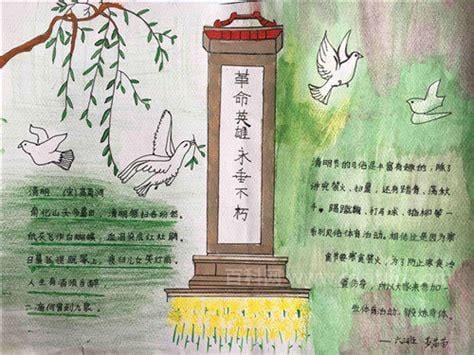 清明 (宋)高菊涧
南北山头多墓田 清明祭扫各纷然。
纸灰飞作白蝴蝶,血泪染成红杜鹃。
日暮狐狸眠冢上,夜归儿女笑灯前。
人生有酒须当醉
一滴何曾到九泉。
革命英雄永垂不朽
清明节的习俗是丰富有趣的,除了
讲究禁火、扫墓,还有踏青、荡秋
千、蹴鞠、打马球、插柳等一
系列风俗体育活动。相传这是因为寒
食节要寒食禁火,为了防止寒食冷
餐伤身,所以大家来参加一
些体育活动,锻炼身体。